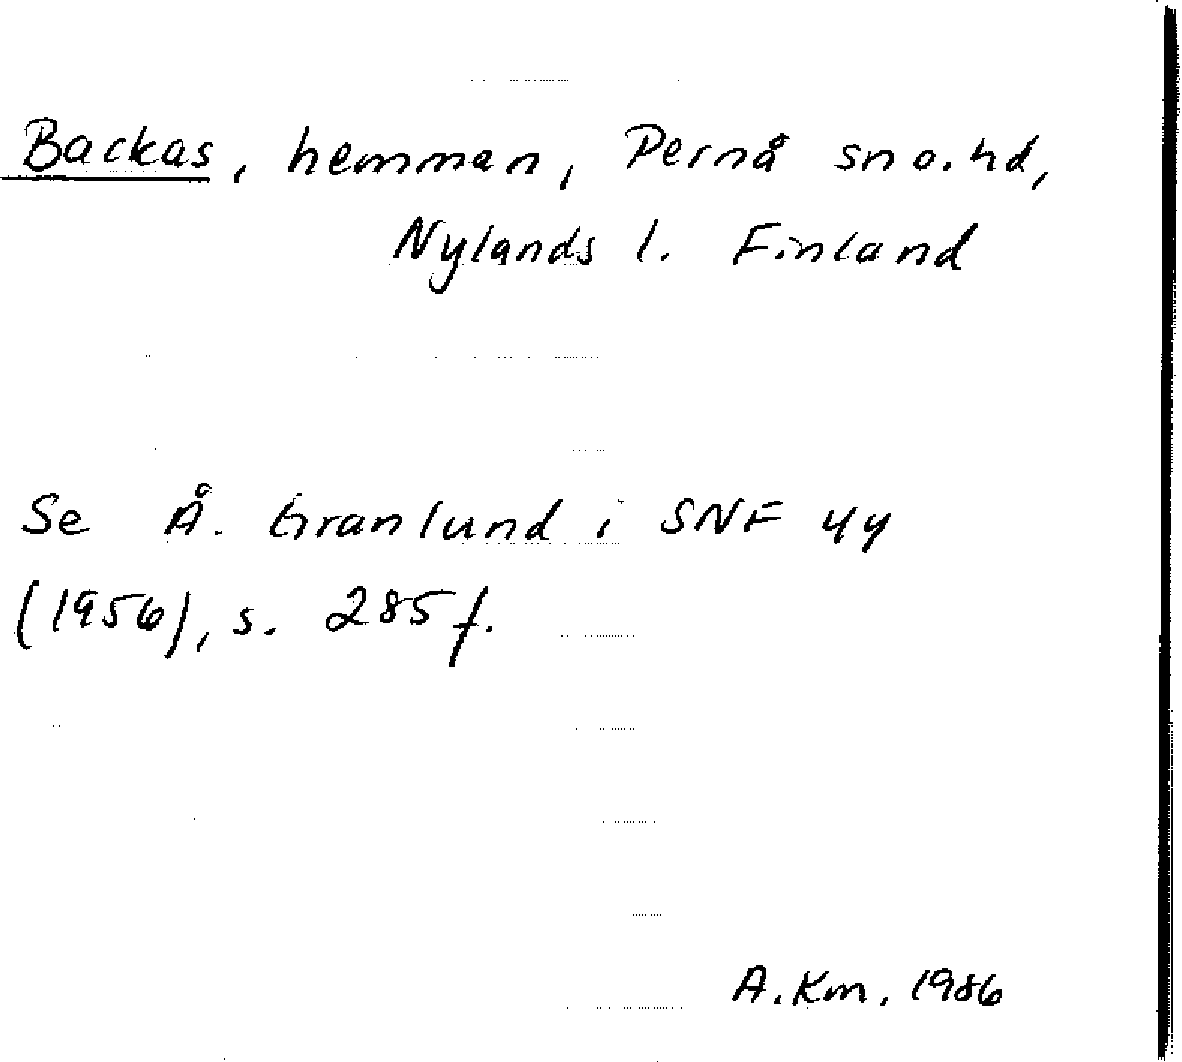 Backas, hemman, Pernå sn o. hd,
Nylands l. Finland
Se Å. Granlund i SNF 44
(1956), s. 285 f.
A. Km. 1986